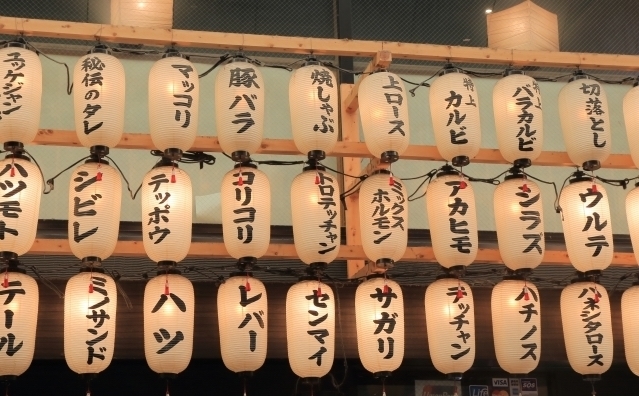 ユッケジャン
秘伝のタレ
マッコリ
豚バラ
焼しゃぶ
上ロース
特上カルビ
特上バラカルビ
切落とし
ハツモト
シビレ
テッポウ
コリコリ
トロテッチャン
ミックスホルモン
アカヒモ
シラズ
ウルテ
テール
ミノサンド
ハツ
レバー
センマイ
サガリ
テッチャン
ハチノス
ハネシタロース
VISA